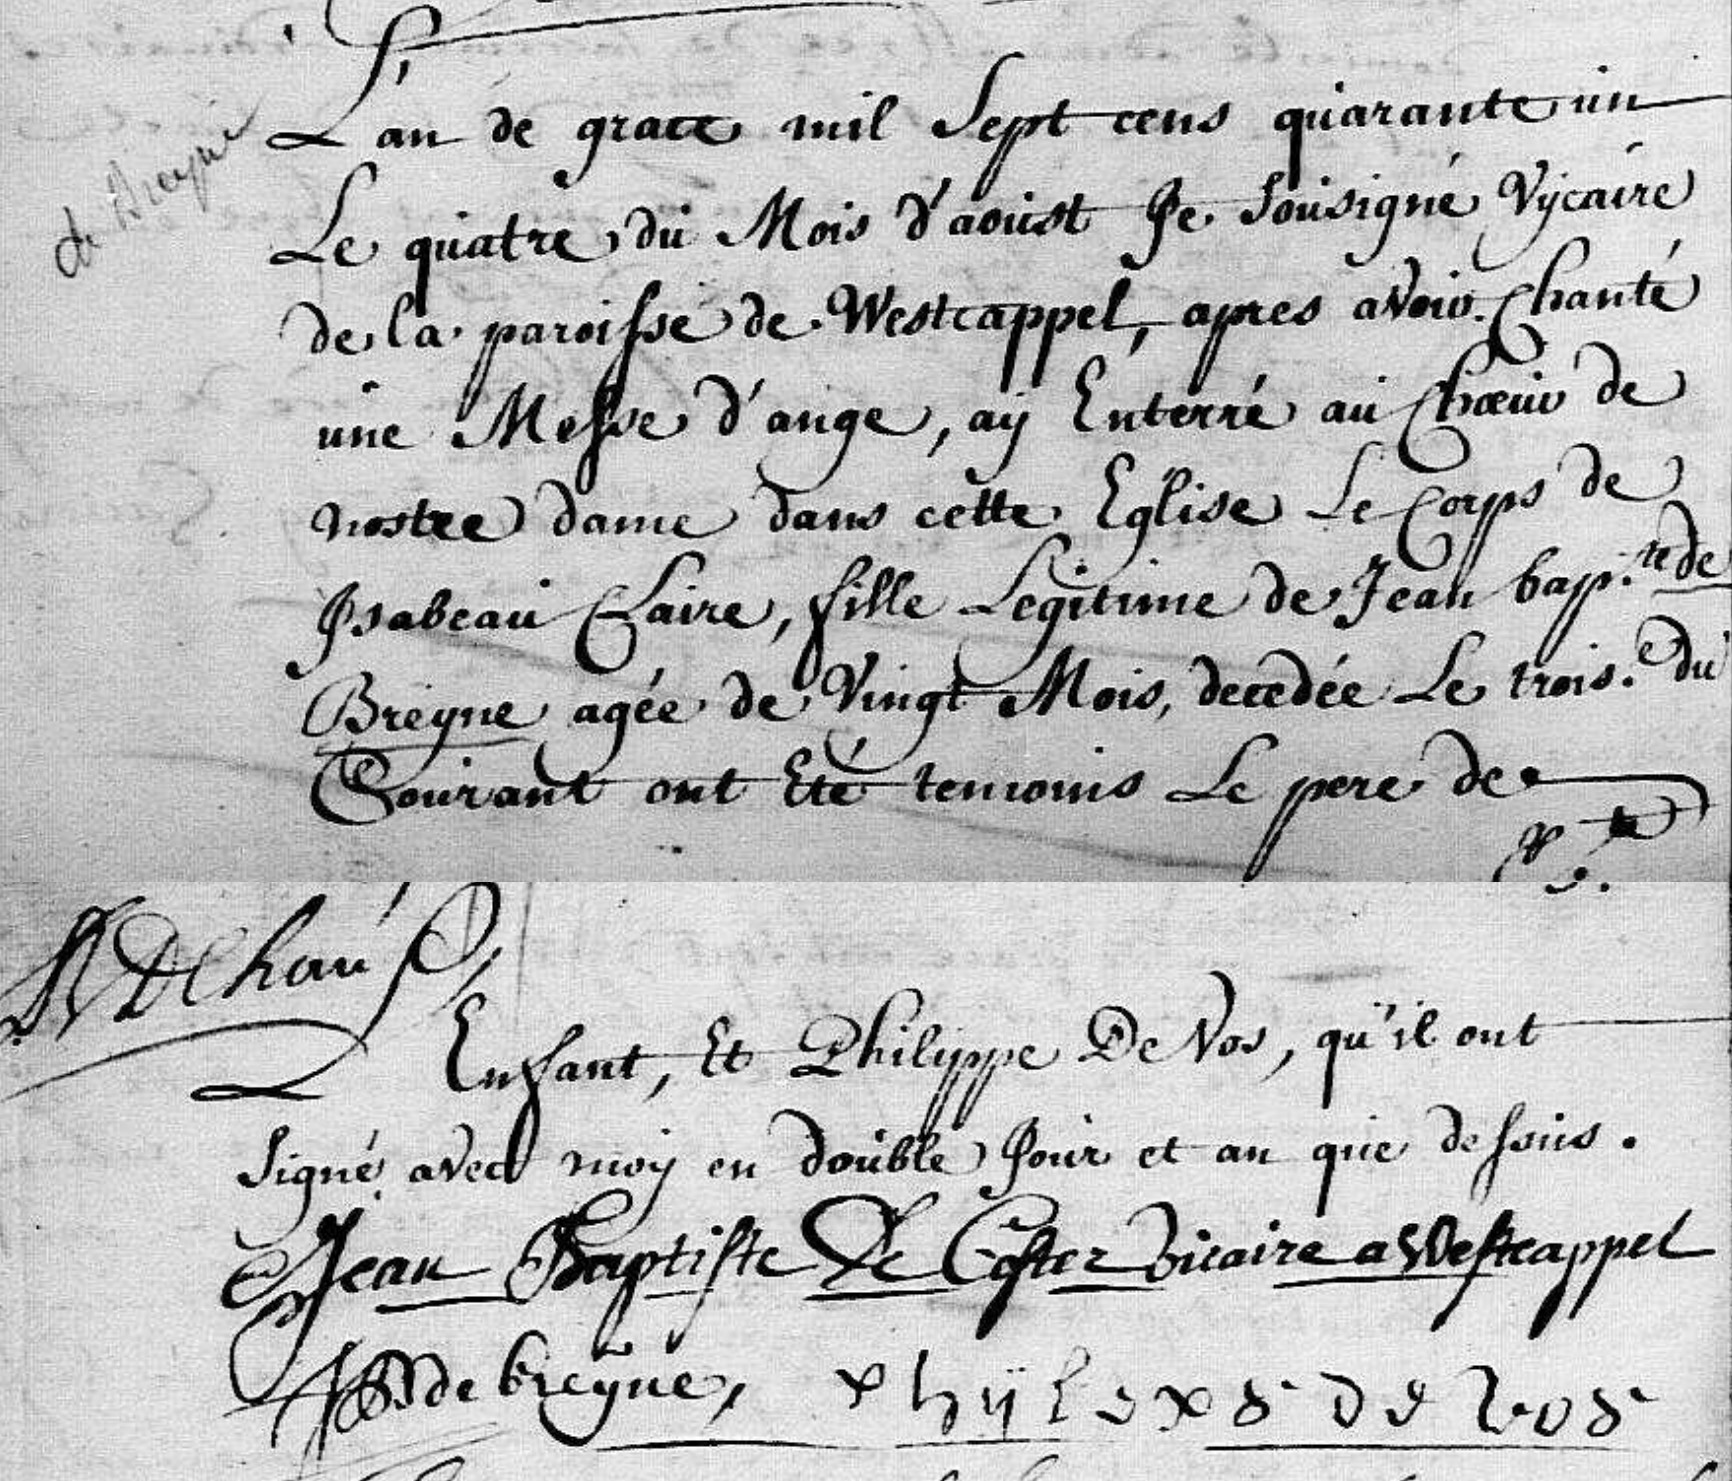 de Breyne
L'an de grace mil Sept cens quarante un
Le quatre du Mois d'aoust Je Sousigné Vycaire
de la paroisse de Westcappel, apres avoir Chanté
une Messe d'ange, ay Enterré au Chœur de
nostre dame dans cette Eglise Le Corps de
Isabeau Claire, fille Legitime de Jean bap.te de
Breyne agée de Vingt Mois, decedée Le trois.e du
Courant ont Eté temoins Le pere de
Enfant, Et Philippe De Vos, qu'il ont
Signé avec moy en double Jour et an que dessus.
Jean Baptiste De Coster Vicaire a Westcappel
JB de breyne, phÿlepus de vos